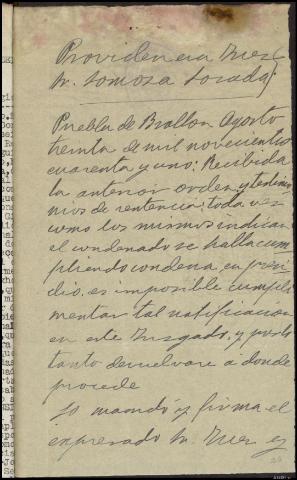 Providencia Juez
Sr. Somoza Losada
Puebla de Brollon Agosto
treinta de mil novecientos
cuarenta y uno: Recibida
la anterior orden y testimo
nios de sentencia; toda vez
como los mismos indican
el condenado se halla cum
pliendo condena, en presi
dio, es imposible cumpli
mentar tal notificacion
en este Juzgado, y por lo
tanto devuelvase a donde
procede
Lo mandó y firma el
expresado Sr. Juez y